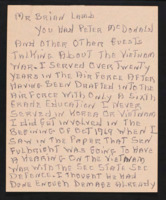 Mr Brian Lamb
You had Peter McDonald
and other other guests
talking about the Vietnam
war. I served over twenty
years in the Air Force after
having been drafted into the
Air Force with only a sixth
grade education I never
served in Korea or Vietnam
I did get involved in the
beginning of Oct 1967 when I
saw in the paper that Sen
Fulbright was going to have
a hearing on the Vietnam
war with the Sec State Sec
Defence. I thought he had
done enough damage already